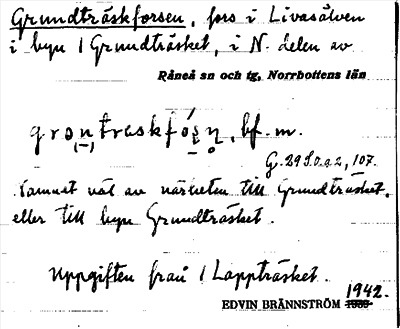 Grundträskforsen, fors i Livasälven
i byn 1 Grundträsket, i N. delen av
Råneå sn och tg, Norrbottens län
bf. m.
G. 29
107.
Namnet väl av närheten till Grundträsket.
eller till byn Grundträsket.
Uppgiften från 1 Lappträsket.
1942.
EDVIN BRÄNNSTRÖM 1939